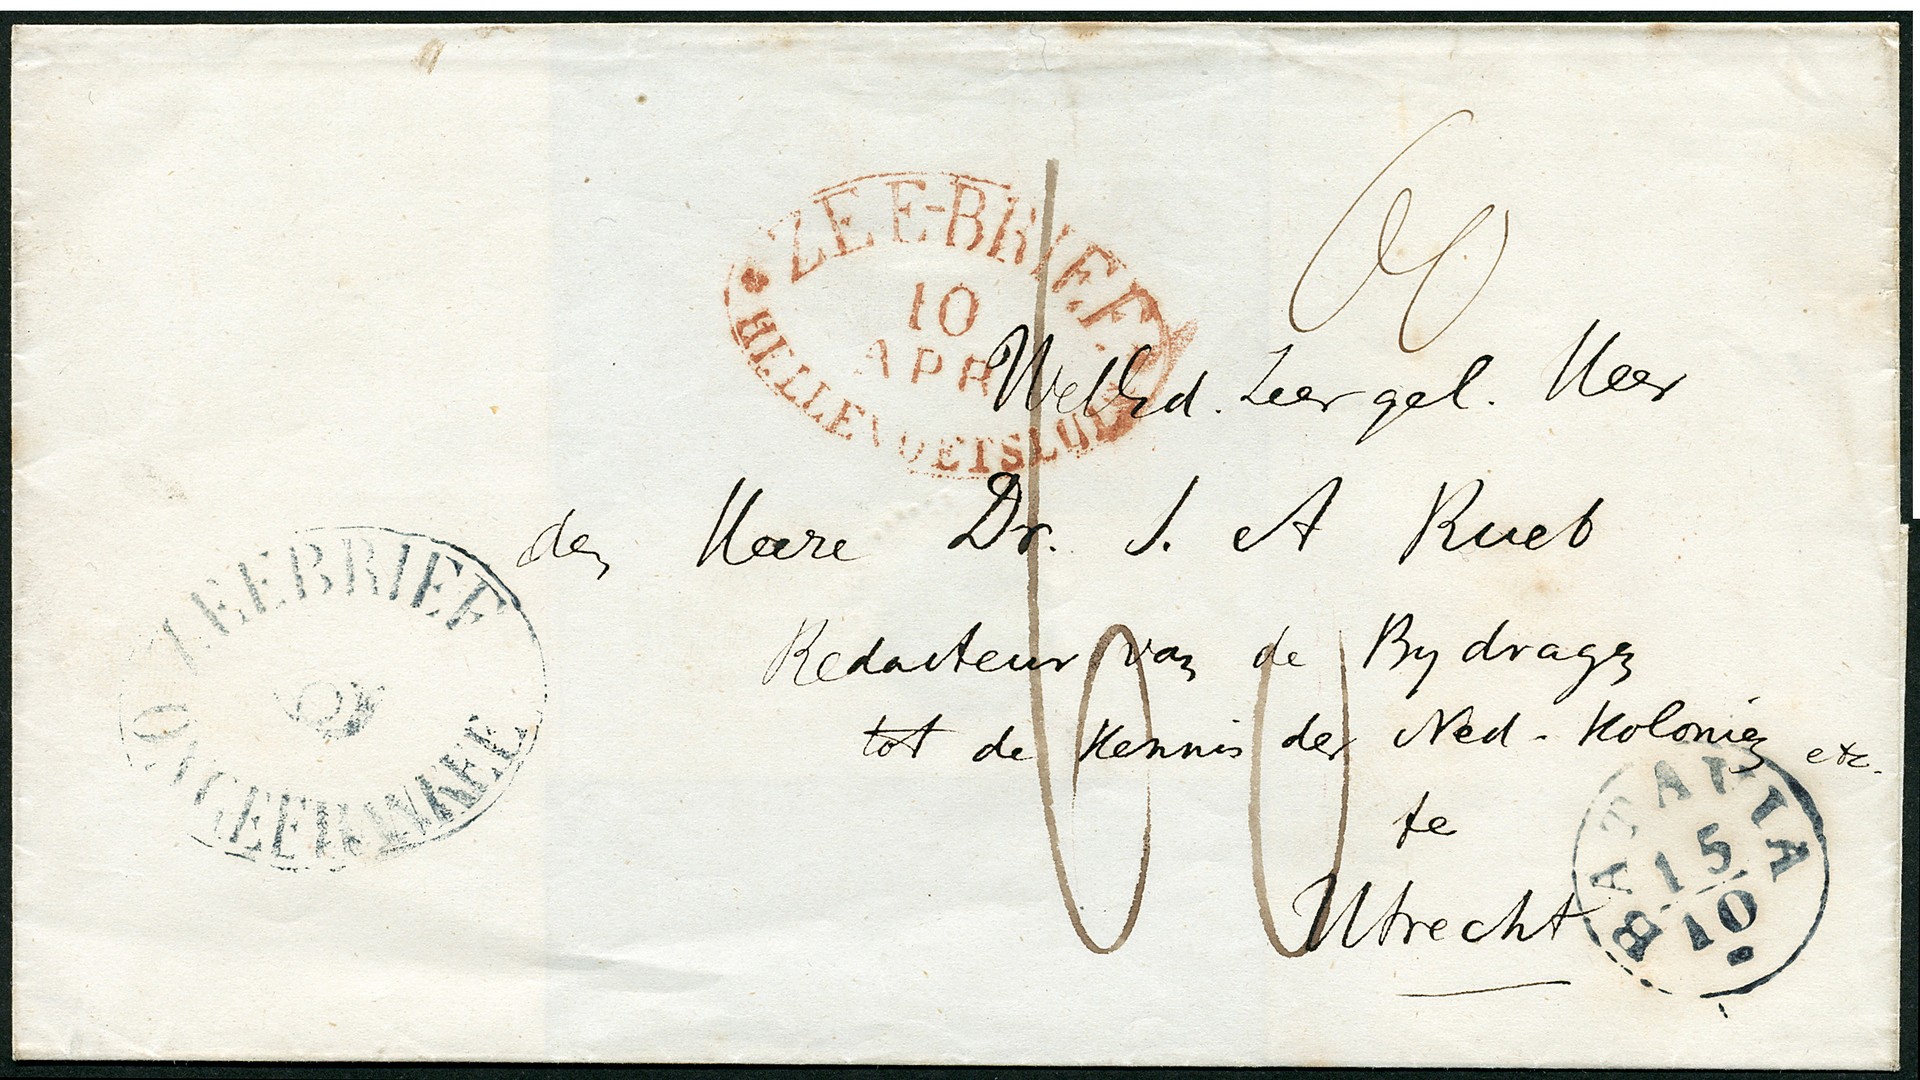 ZEE-BRIEF
10
APR
HELLEVOETSLUIS
60
WelEd. Zeergel. Heer
den Heere Dr. J. A Rueb
Redacteur van de Bydragen
tot de Kennis der Ned - Kolonien etc.
te
Utrecht
100
ZEEBRIEF
ONGEFRANKEE
BATAVIA
15
10